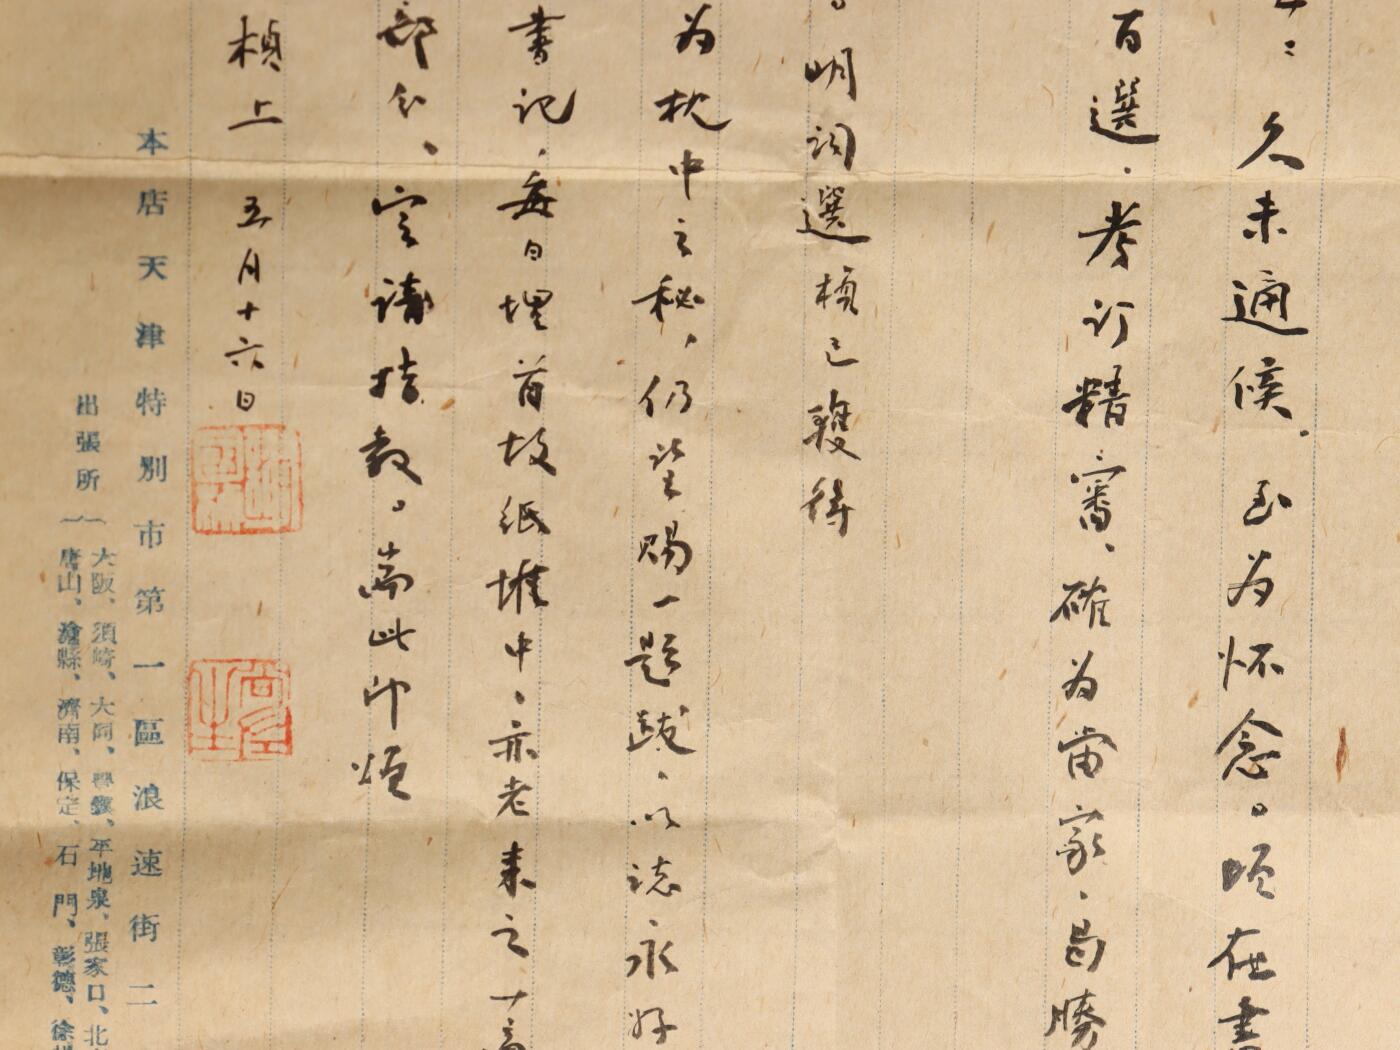 久未通候.至为怀念。顷在書
百選.考订精審、確为當家、曷勝
。明词選楨已獲得
为枕中之秘,仍望赐一題跋.以誌永好
書记.每日埋首故纸堆中、亦老来之一
部分、定請指教。耑此即煩
楨上 五月十六日
本店天津特別市第一區浪速街二
出張所
大阪、須崎、大同、平地泉、張家口、北
唐山、滄縣、濟南、保定、石門、彰德、徐